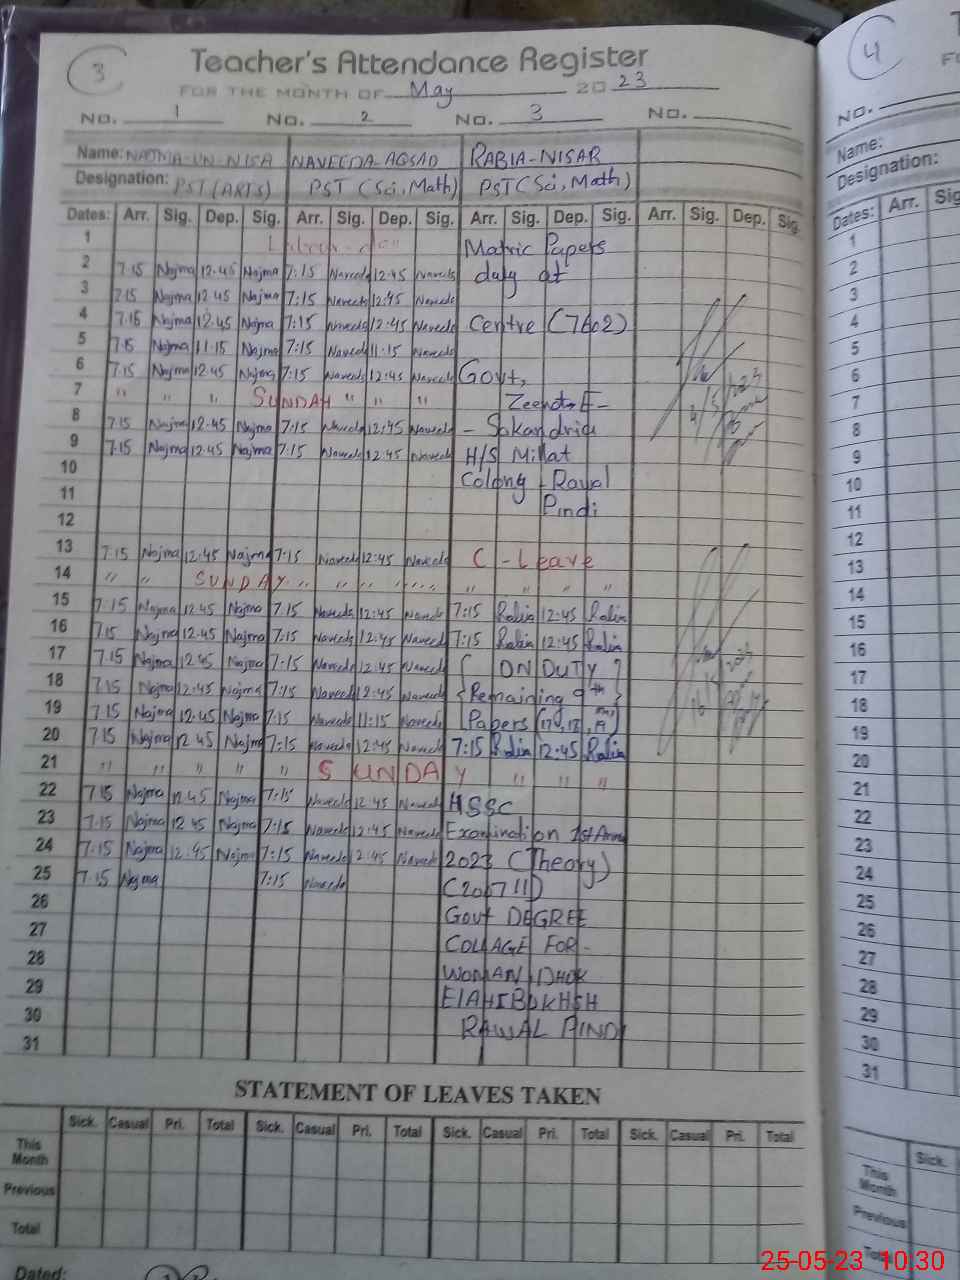 3
Teacher's Attendance Register
FOR THE MONTH OF May 2023
No. 1 No. 2 No. 3 No.
Name: NAJMA-UN-NISA NAVEEDA-AQSAD RABIA-NISAR
Designation: PST (ARTS) PST (Sci, Math) PST (Sci, Math)
Dates: Arr. Sig. Dep. Sig. Arr. Sig. Dep. Sig. Arr. Sig. Dep. Sig. Arr. Sig. Dep. Sig.
1 Matric Papers
2 7.15 Najma 12.45 Najma 7:15 Naveeda 12:45 Naveeda duty at
3 7.15 Najma 12.45 Najma 7:15 Naveeda 12:45 Naveeda
4 7.15 Najma 12.45 Najma 7:15 Naveeda 12:45 Naveeda Centre (7602)
5 7.15 Najma 11.15 Najma 7:15 Naveeda 11:15 Naveeda
6 7.15 Najma 12.45 Najma 7:15 Naveeda 12:45 Naveeda Govt,
7 " " " SUNDAY " " " Zeenat-E-
8 7.15 Najma 12.45 Najma 7:15 Naveeda 12:45 Naveeda - Sakandria
9 7.15 Najma 12.45 Najma 7:15 Naveeda 12:45 Naveeda H/S Millat
10 Colony - Rawal
11 Pindi
12
13 7.15 Najma 12.45 Najma 7:15 Naveeda 12:45 Naveeda C - Leave
14 " " SUNDAY " " " " " " " "
15 7.15 Najma 12.45 Najma 7.15 Naveeda 12:45 Naveeda 7:15 Rabia 12:45 Rabia
16 7.15 Najma 12.45 Najma 7:15 Naveeda 12:45 Naveeda 7:15 Rabia 12:45 Rabia
17 7.15 Najma 12.45 Najma 7:15 Naveeda 12:45 Naveeda ON DUTY
18 7.15 Najma 12.45 Najma 7:15 Naveeda 12:45 Naveeda Remaining 9th
19 7.15 Najma 12.45 Najma 7:15 Naveeda 11:15 Naveeda Papers (17, 18, 19)
20 7.15 Najma 12.45 Najma 7:15 Naveeda 12:45 Naveeda 7:15 Rabia 12:45 Rabia
21 " " " " " SUNDAY " " "
22 7.15 Najma 12.45 Najma 7:15 Naveeda 12:45 Naveeda HSSC
23 7.15 Najma 12.45 Najma 7:15 Naveeda 12:45 Naveeda Examination 1st Annu
24 7.15 Najma 12.45 Najma 7:15 Naveeda 12:45 Naveeda 2023 (Theory)
25 7.15 Najma 7:15 Naveeda
26 Govt DEGREE
27 COLLAGE FOR -
28 WOMAN DHOK
29 ElAHIBUKHSH
30 RAWAL PINDI
31
STATEMENT OF LEAVES TAKEN
Sick. Casual Pri. Total Sick. Casual Pri. Total Sick. Casual Pri. Total Sick. Casual Pri. Total
This Month
Previous
Total
Dated:
4
No.
Name:
Designation:
Dates: Arr.
1
2
3
4
5
6
7
8
9
10
11
12
13
14
15
16
17
18
19
20
21
22
23
24
25
26
27
28
29
30
31
Sick.
This Month
Previous
25-05-23 10.30